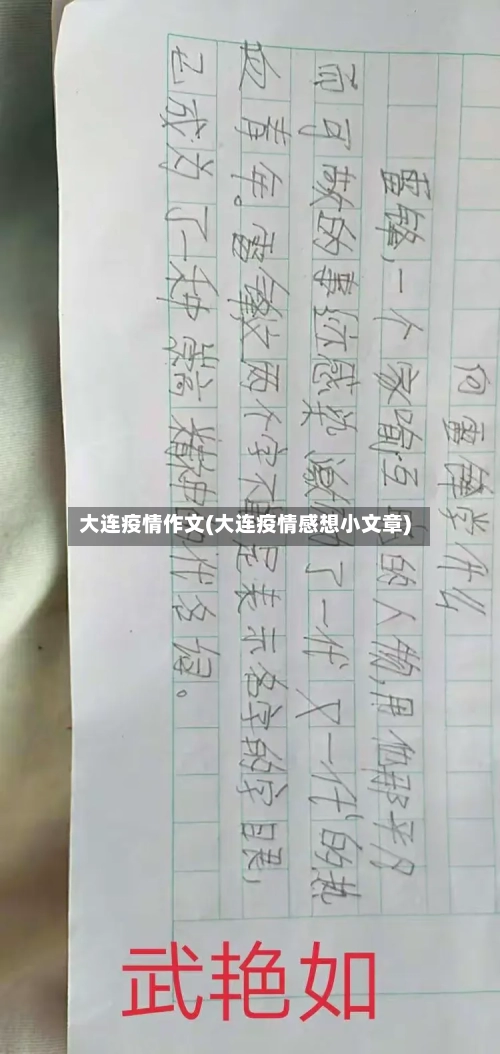 向雷锋学什么
雷锋,一个家喻互的人物,用他那平凡
而可敬的事迹感染激励了一代又一代的热
血青年。雷锋这两个字不是表示名字的字眼,
已成为了一种崇高精神的代名。
大连疫情作文(大连疫情感想小文章)
武艳如